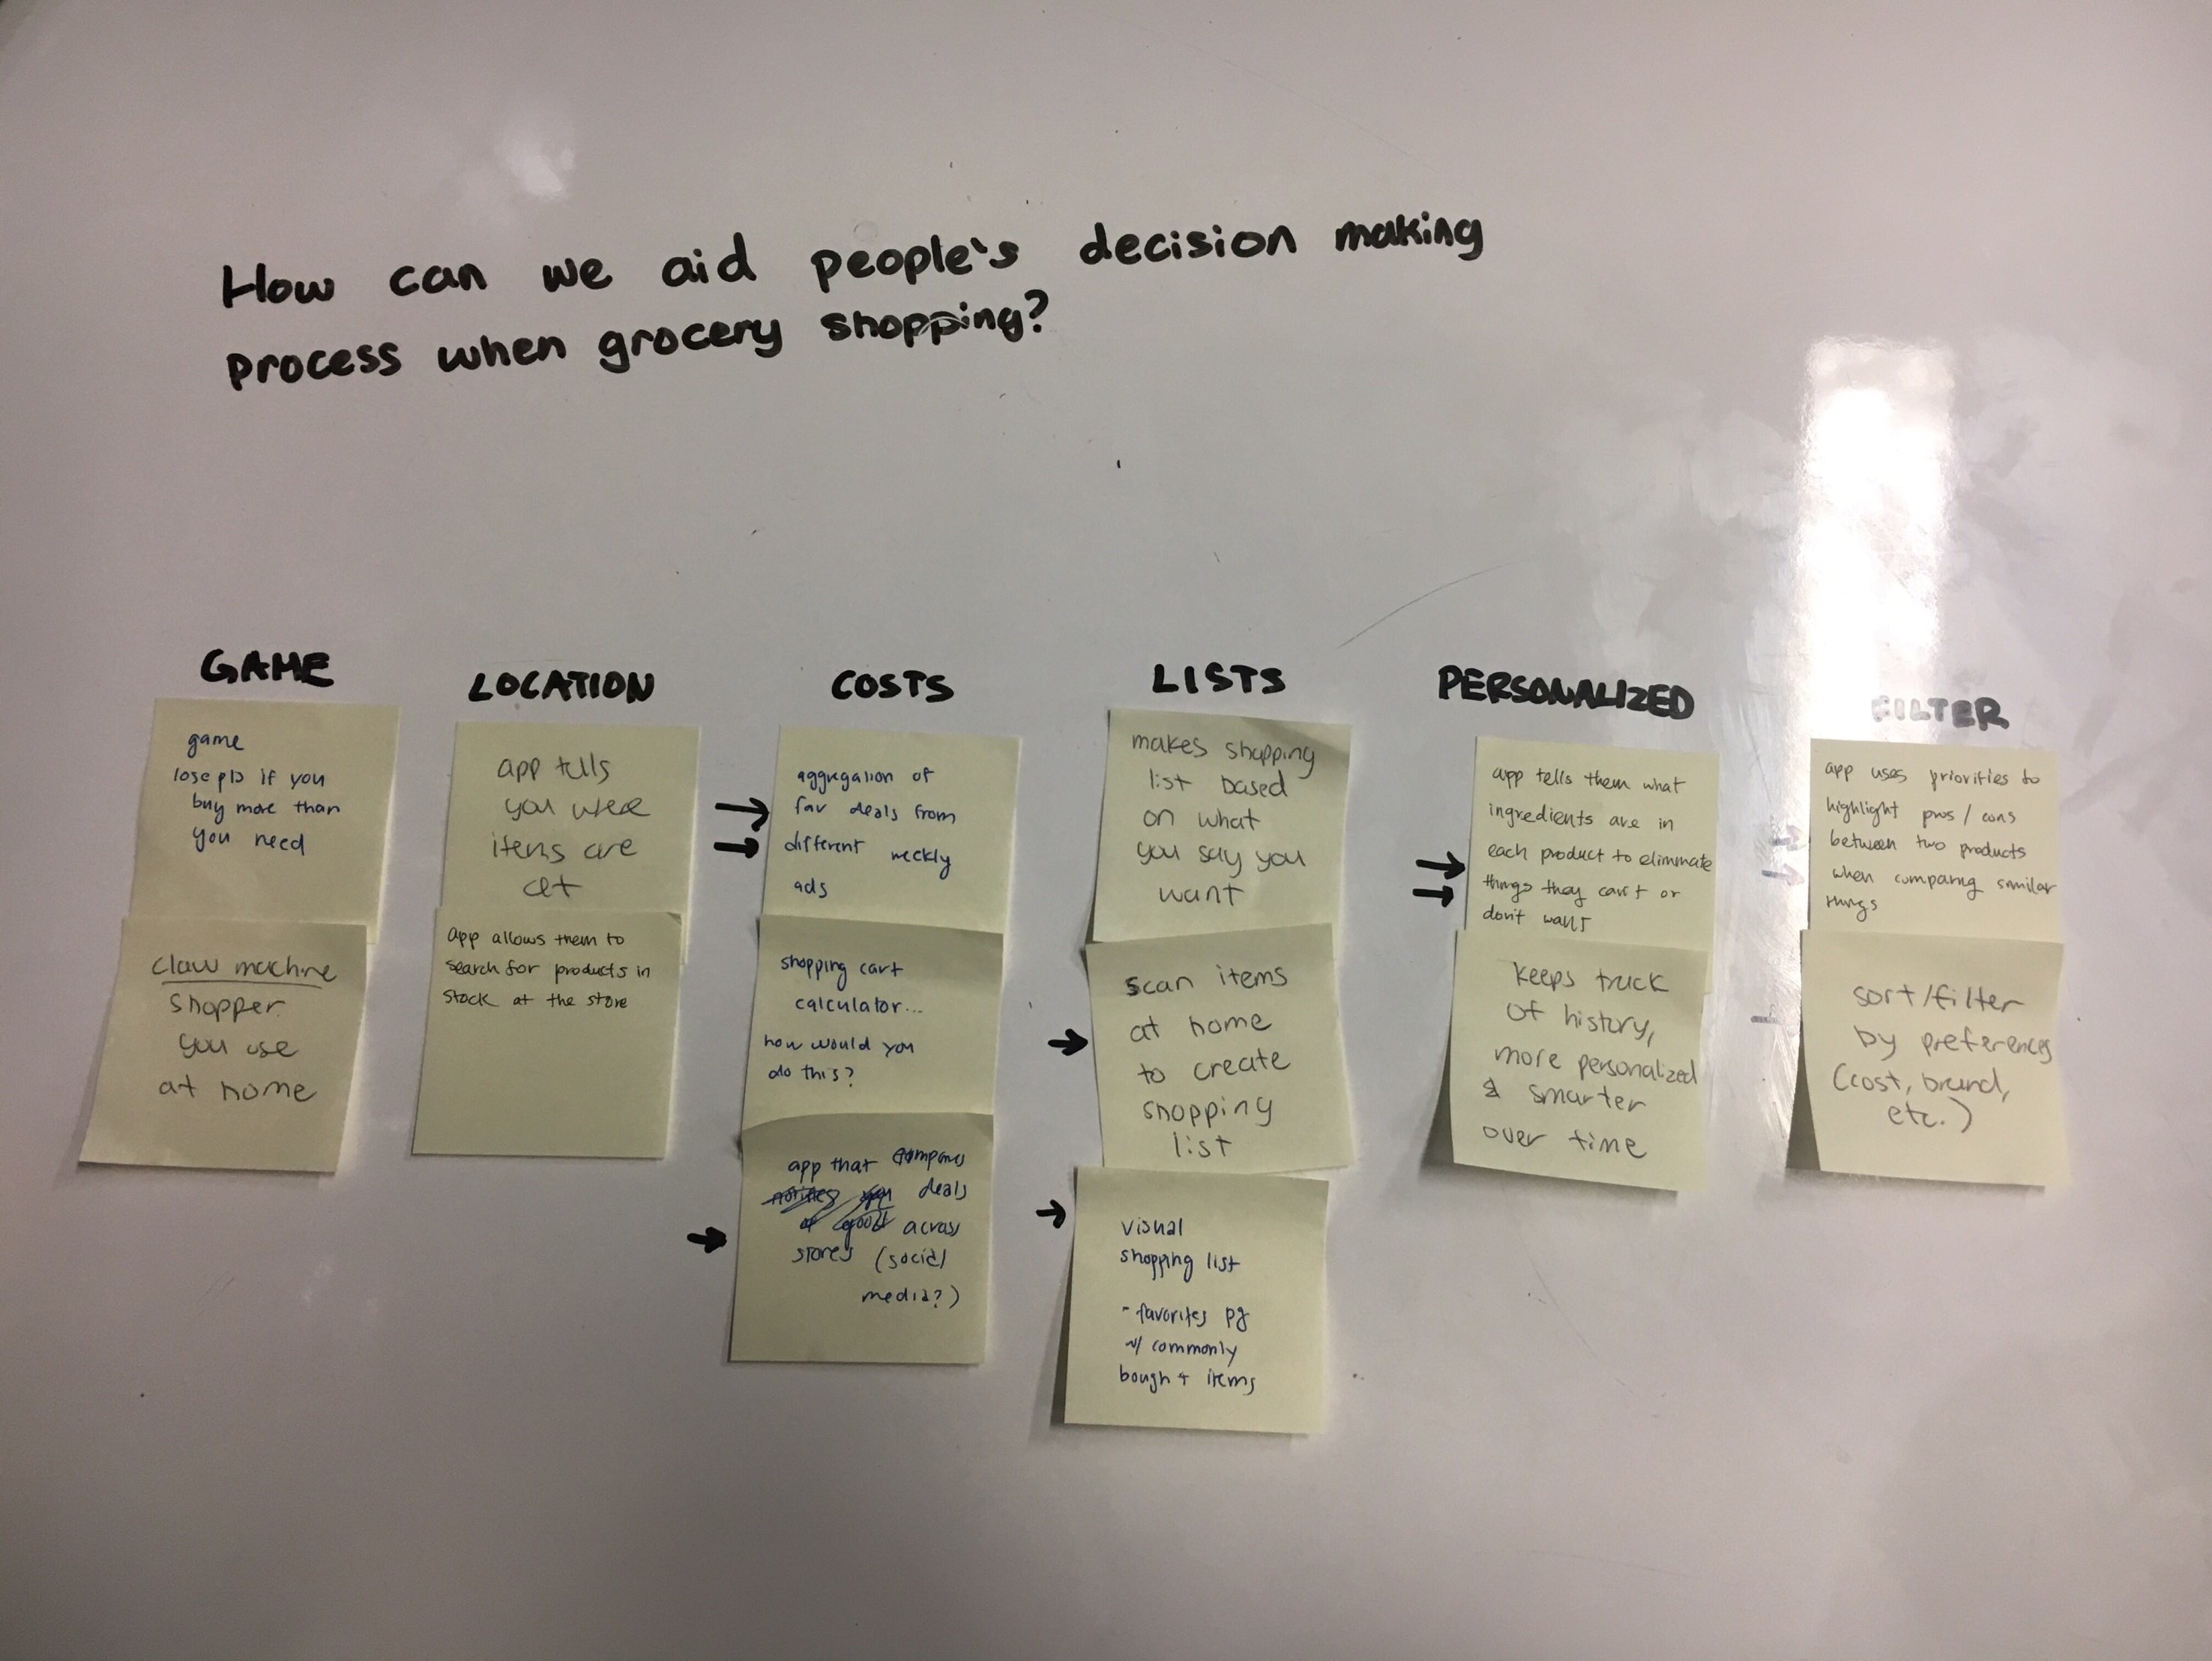 How can we aid people's decision making
process when grocery shopping?
GAME
game
lose pts if you
buy more than
you need
claw machine
shopper
you use
at home
LOCATION
app tells
you where
items are
at
app allows them to
search for products in
stock at the store
COSTS
aggregation of
fav deals from
different weekly
ads
shopping cart
calculator...
how would you
do this?
app that compares
deals
across
stores (social
media?)
LISTS
makes shopping
list based
on what
you say you
want
scan items
at home
to create
shopping
list
visual
shopping list
- favorites pg
w/ commonly
bought items
PERSONALIZED
app tells them what
ingredients are in
each product to eliminate
things they can't or
don't want
keeps track
of history,
more personalized
& smarter
over time
FILTER
app uses priorities to
highlight pros / cons
between two products
when comparing similar
things
sort/filter
by preferences
(cost, brand,
etc.)